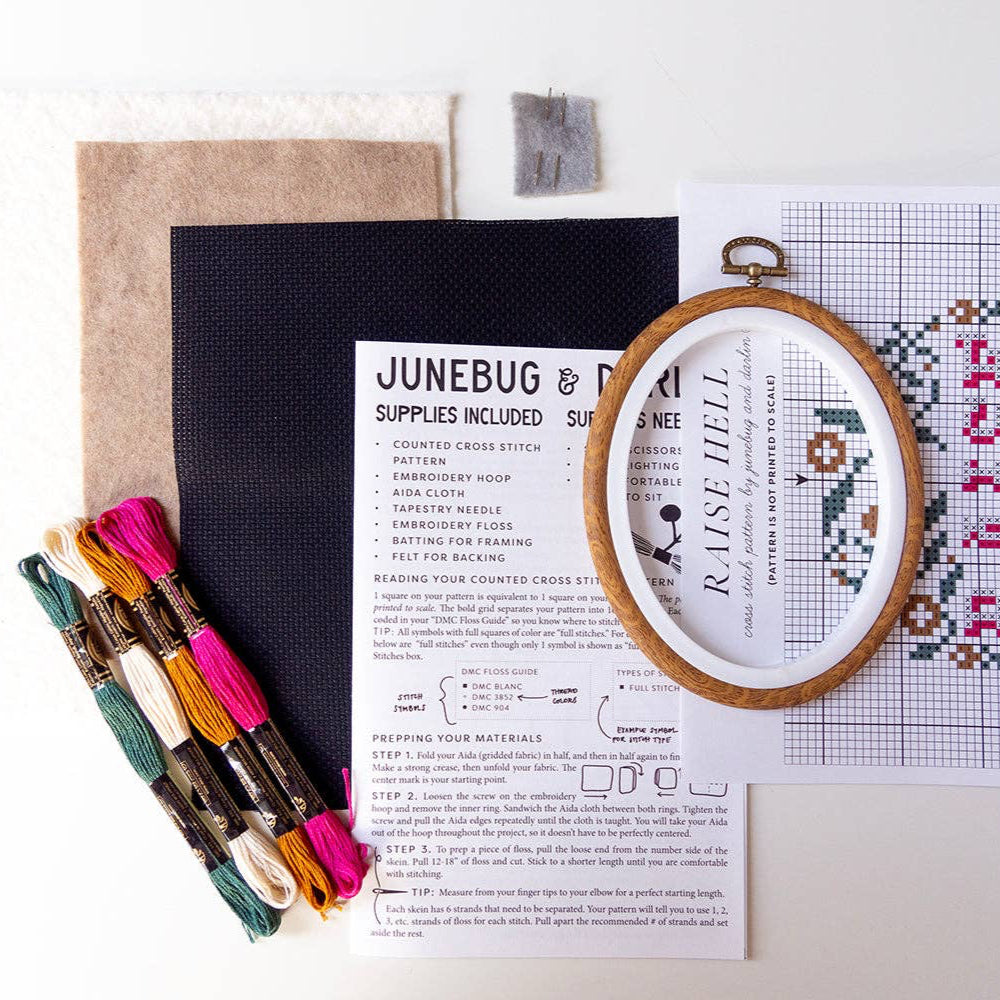 JUNEBUG &
SUPPLIES INCLUDED
• COUNTED CROSS STITCH
PATTERN
• EMBROIDERY HOOP
• AIDA CLOTH
• TAPESTRY NEEDLE
• EMBROIDERY FLOSS
• BATTING FOR FRAMING
• FELT FOR BACKING
SCISSORS
TO SIT
READING YOUR COUNTED CROSS
1 square on your pattern is equivalent to 1 square on your
printed to scale. The bold grid separates your pattern into
coded in your "DMC Floss Guide" so you know where to stitch
TIP: All symbols with full squares of color are "full stitches." For
below are "full stitches" even though only 1 symbol is shown as
Stitches box.
STITCH
SYMBOLS
DMC FLOSS GUIDE
DMC BLANC
DMC 3852
DMC 904
THREAD
COLORS
TYPES OF
FULL STITCH
EXAMPLE SYMBOL
FOR STITCH TYPE
PREPPING YOUR MATERIALS
STEP 1. Fold your Aida (gridded fabric) in half, and then in half again to
Make a strong crease, then unfold your fabric. The
center mark is your starting point.
STEP 2. Loosen the screw on the embroidery
hoop and remove the inner ring. Sandwich the Aida cloth between both rings. Tighten the
screw and pull the Aida edges repeatedly until the cloth is taught. You will take your Aida
out of the hoop throughout the project, so it doesn't have to be perfectly centered.
STEP 3. To prep a piece of floss, pull the loose end from the number side of the
skein. Pull 12-18" of floss and cut. Stick to a shorter length until you are comfortable
with stitching.
TIP: Measure from your finger tips to your elbow for a perfect starting length.
Each skein has 6 strands that need to be separated. Your pattern will tell you to use 1, 2,
3, etc. strands of floss for each stitch. Pull apart the recommended # of strands and set
aside the rest.
RAISE HELL
cross stitch pattern by junebug and darlin
(PATTERN IS NOT PRINTED TO SCALE)